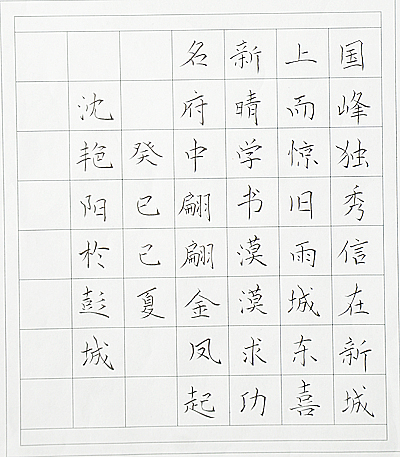 国峰独秀信在新城
上而惊旧雨城东喜
新晴学书漠漠求功
名府中翩翩金凤起
癸已己夏
沈艳阳於彭城